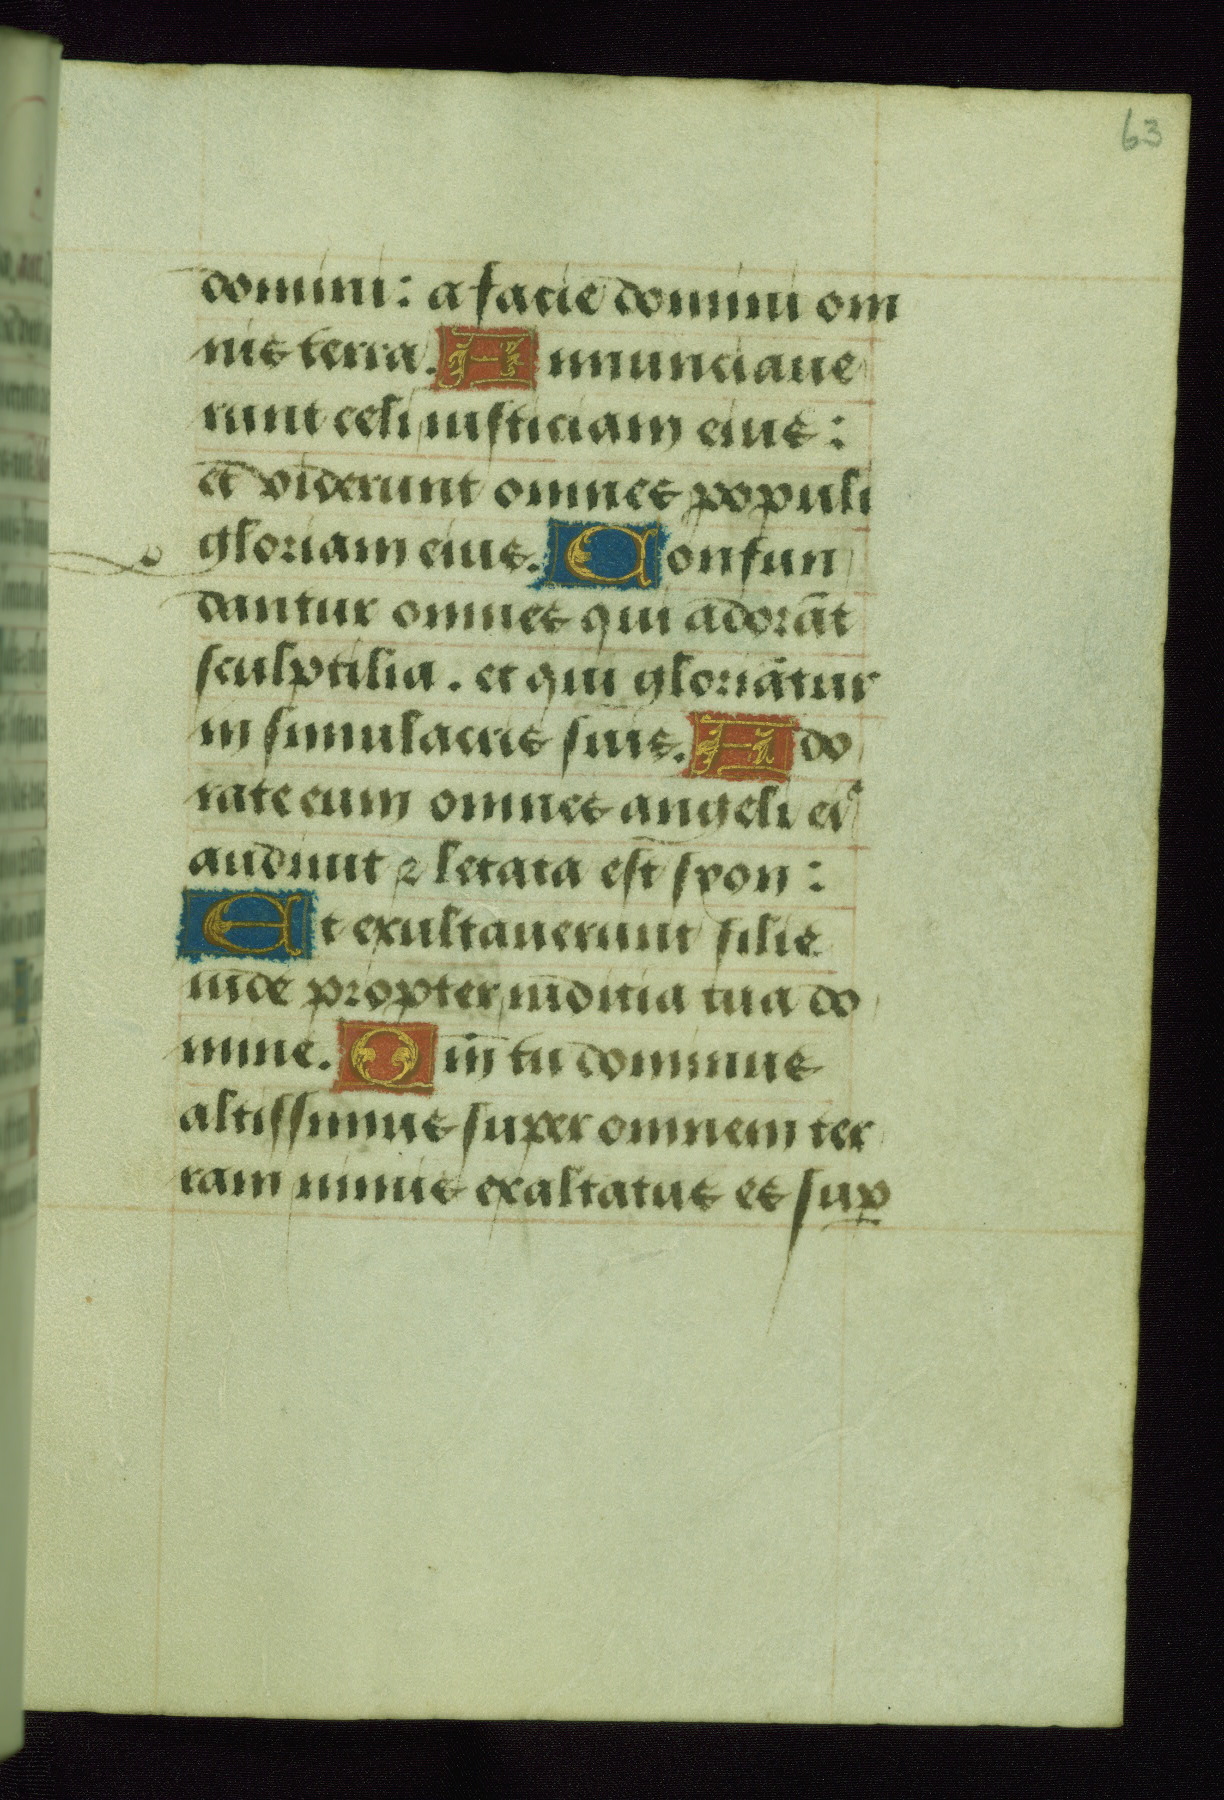 63
domini: a facie domini om
nis terra. Annunciaue
runt celi iusticiam eius:
et viderunt omnes populi
gloriam eius. Confun
dantur omnes qui adorāt
sculptilia. et qui gloriātur
in simulacris suis. Ado
rate eum omnes angeli eiꝰ
audiuit ⁊ letata est syon:
Et exultauerunt filie
iude propter iudicia tua do
mine. Qm̄ tu dominus
altissimus super omnem ter
ram nimis exaltatus es suꝑ